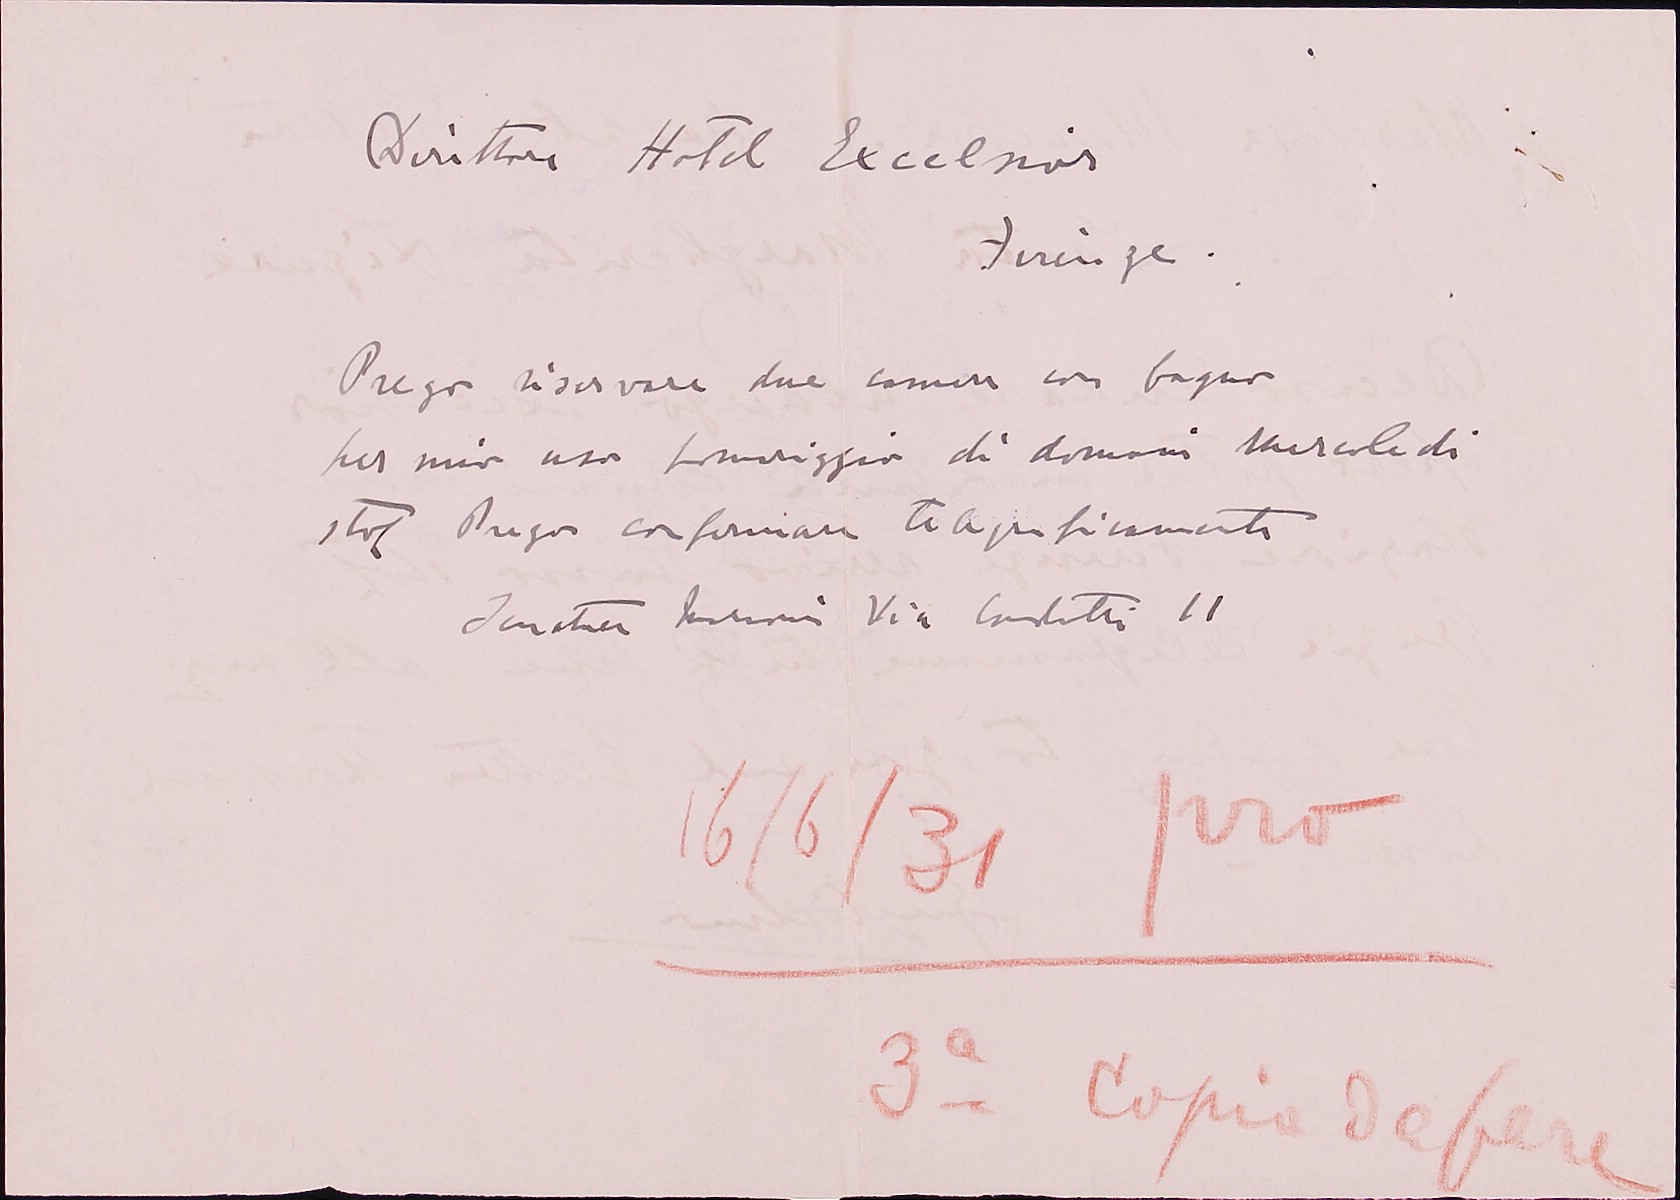 Direttore Hotel Excelsior
Firenze.
Prego riservare due camere con bagno
per mio uso pomeriggio di domani Mercoledi
stop Prego confermare telegraficamente
Senatore Marconi Via Condotti 11
16/6/31 pro
3a Copia da fare